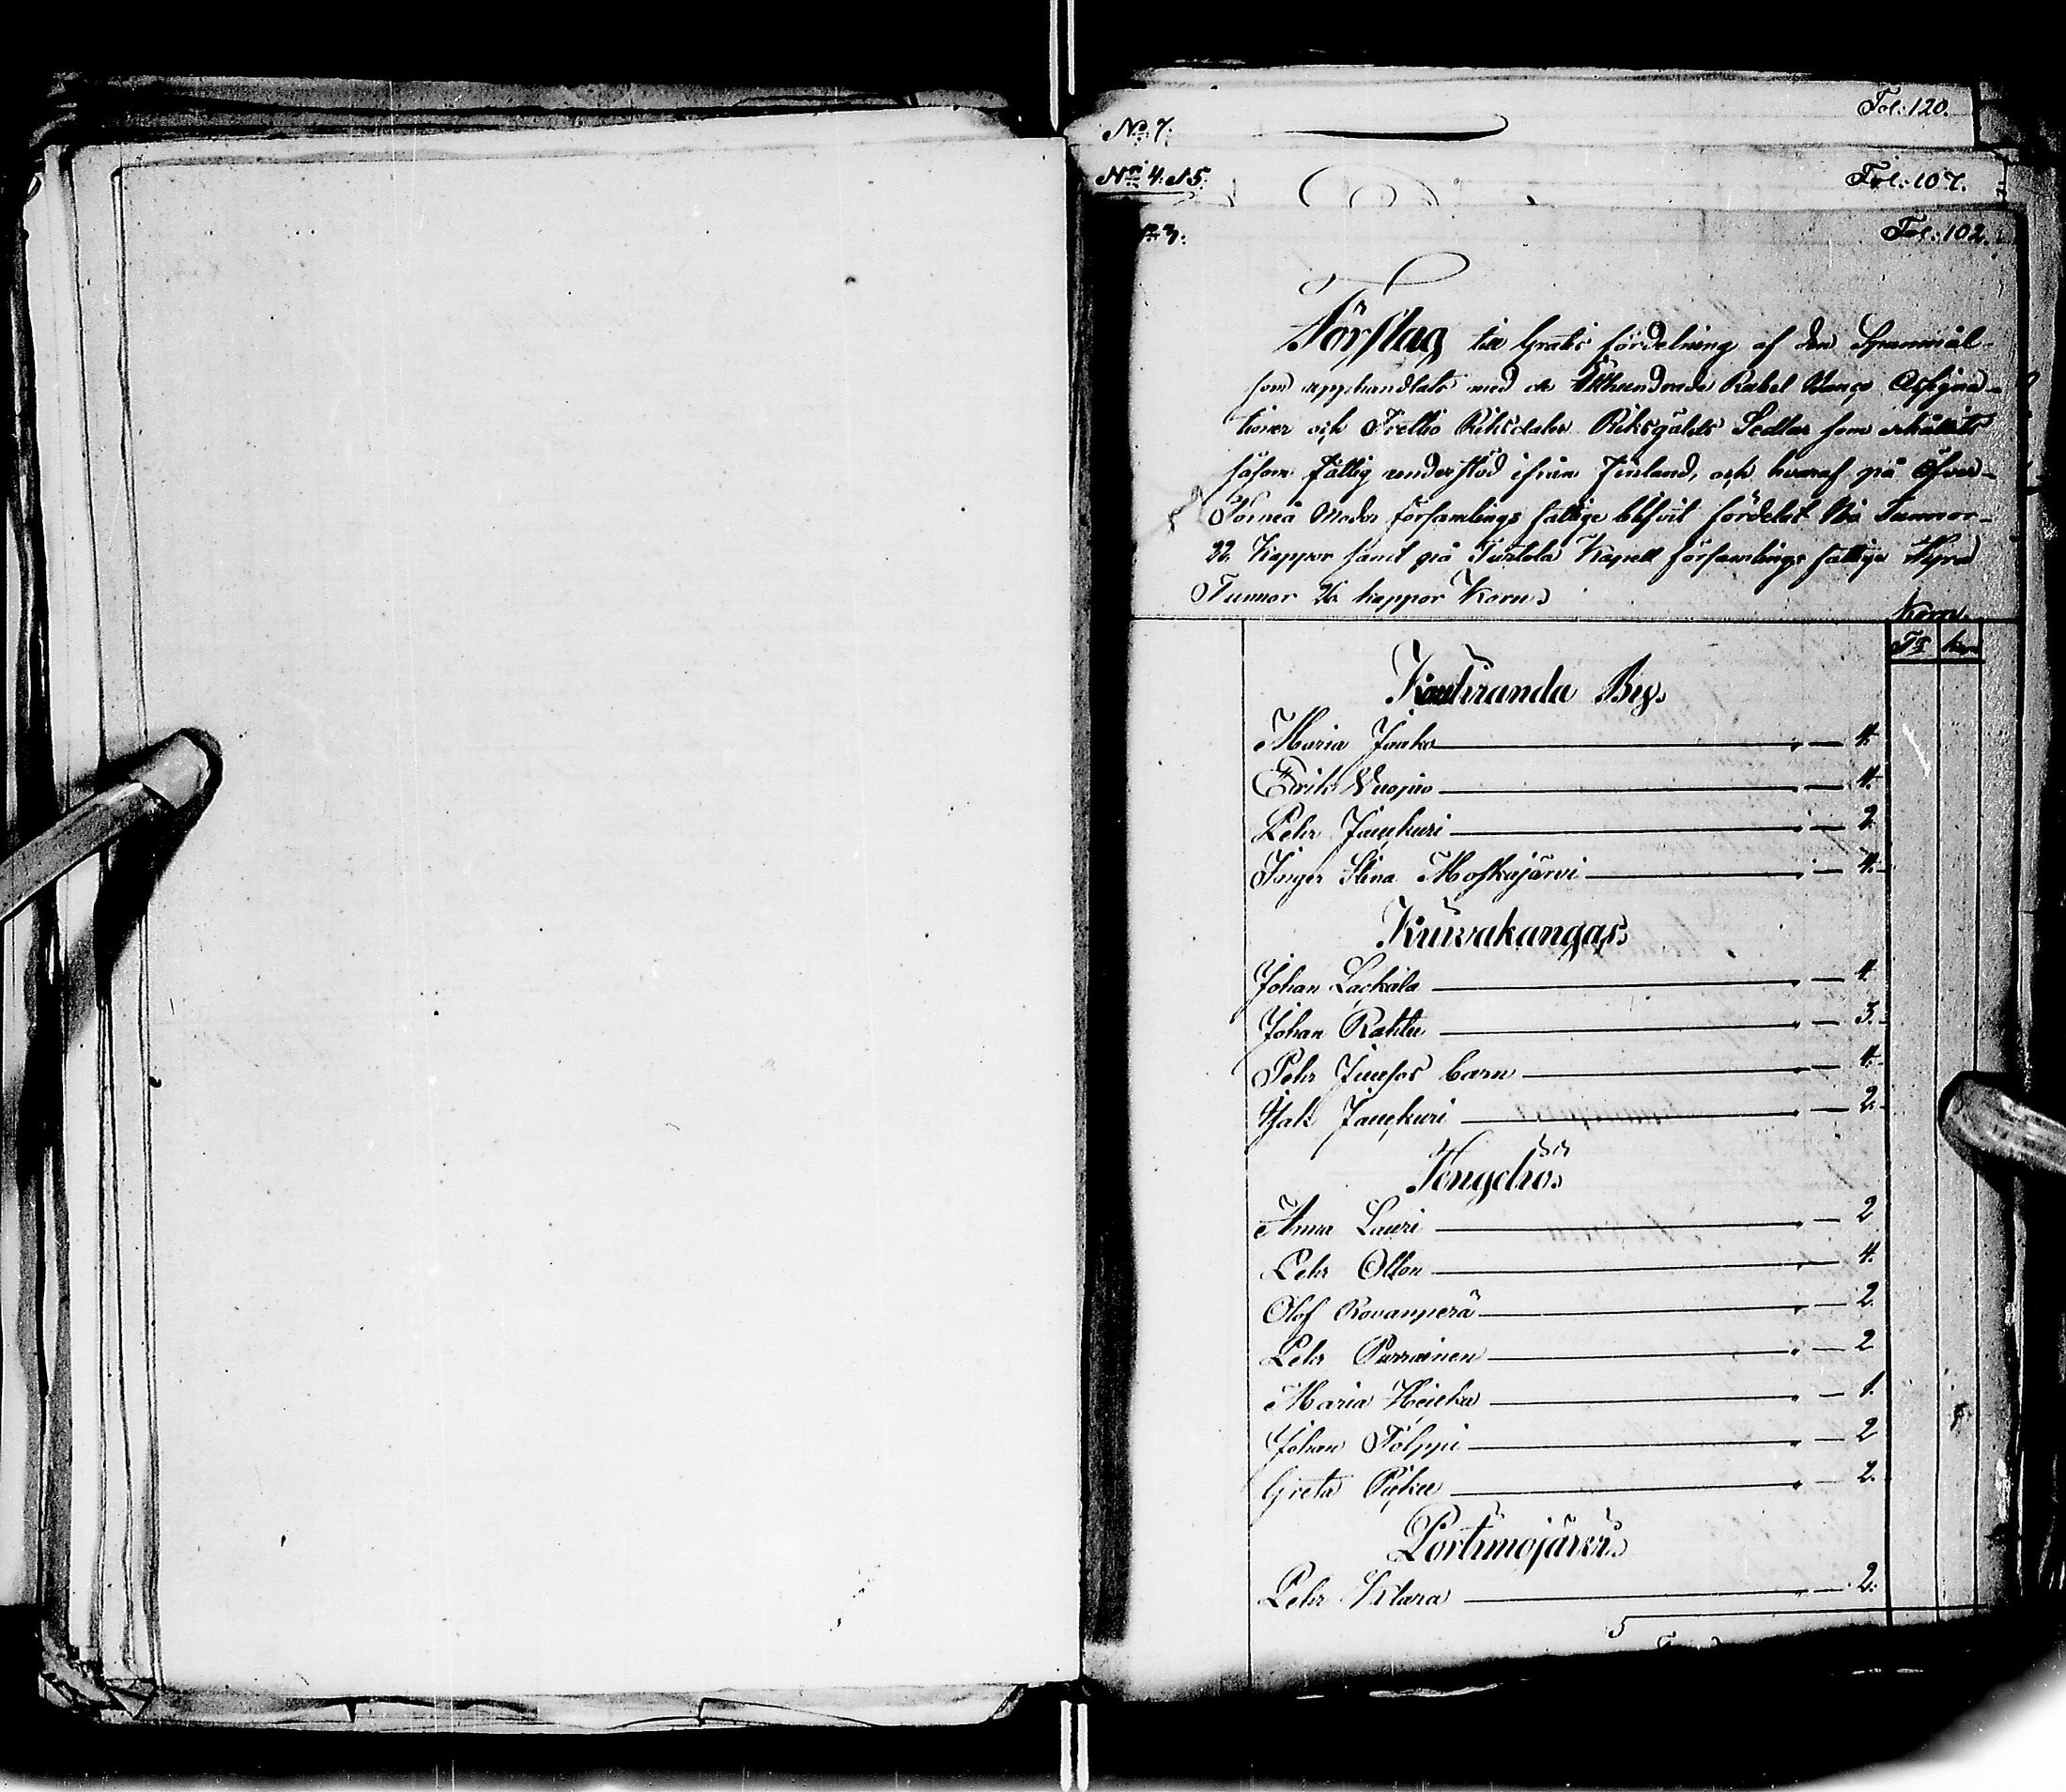 Fol: 120.
No 7.
No 4. & 5.
Fol: 107.
No 3.
Fol: 102.
Förslag till Gratis fördelning af den Spannmål
som upphandlats med de Åttahundrade Rubel Banco Assigna-
tioner och Trettio Riksdaler Riksgälds Sedlar som erhållits
såsom fattig understöd ifrån Finland, och hvaraf på Öfver-
Torneå Moder församlings fattige blifvit fördelat Nio Tunnor
22 Kappor samt på Turtola Kapell församlings fattige Fyra
Tunnor 26 kappor Korn.
Korn.
Tr kpr
Kauliranda By.
Maria Juuko — 4.
Erik Wuopio — 4.
Pehr Jaukuri — 2.
Inger Stina Moskajärvi — 4.
Kuivakangas.
Johan Lackala — 4.
Johan Rahtu — 3.
Pehr Juusos barn — 4.
Isak Jaukuri — 2.
Tengeliö.
Anna Lauri — 2
Pehr Ollon — 4.
Olof Rovanperä — 2.
Pehr Purrainen — 2
Maria Heicka — 1.
Johan Tolppi — 2
Greta Pieka — 2.
Portimojärvi.
Pehr Klara — 2.